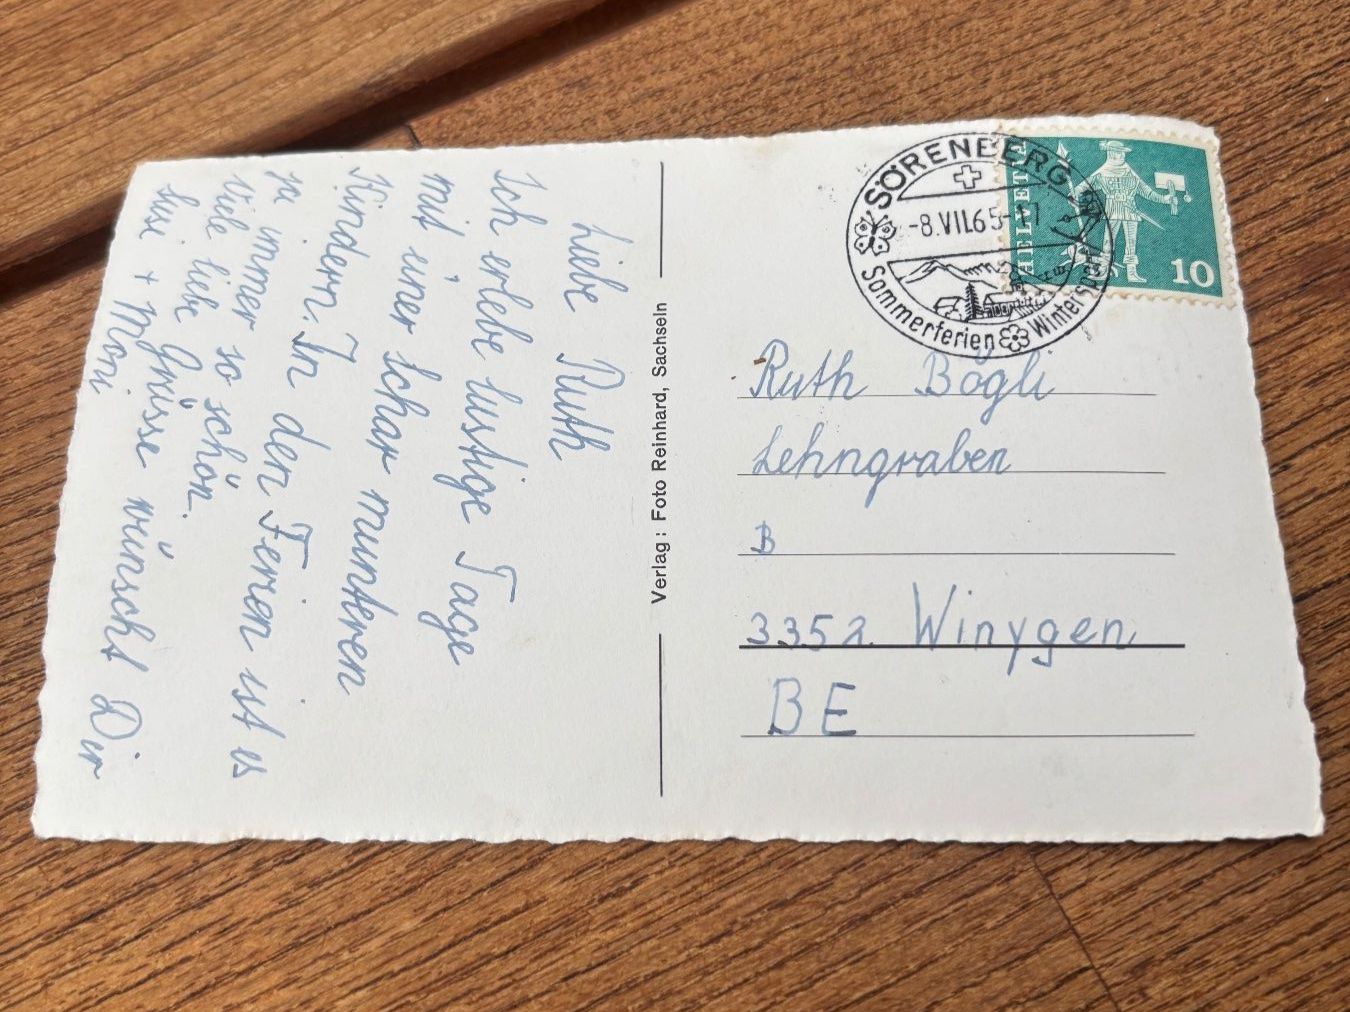 Liebe Ruth
Ich erlebe lustige Tage
mit einer Schar munteren
Kindern. In den Ferien ist es
ja immer so schön.
Viele liebe Grüsse wünscht Dir
Susi + Moni
Verlag: Foto Reinhard, Sachseln
SÖRENBERG
-8.VII.65-17
Sommerferien Wintersport
HELVETIA
10
Ruth Bögli
Lehngraben
B
3352 Winygen
BE